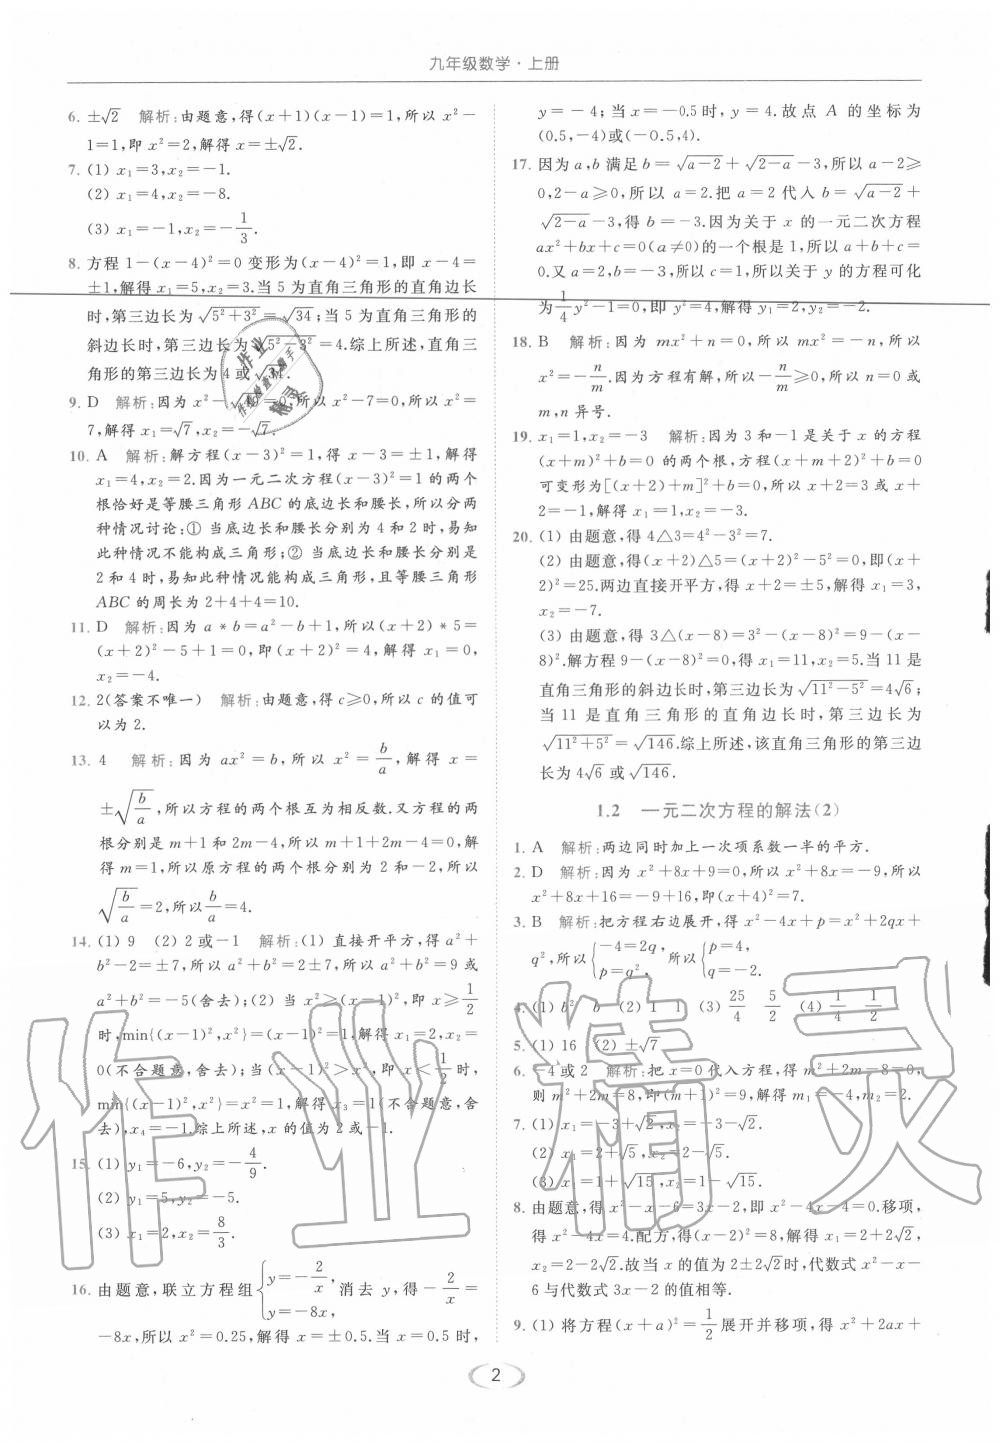 九年级数学·上册
6. ±√2　解析:由题意,得(x+1)(x-1)=1,所以 x²-
1=1,即 x²=2,解得 x=±√2.
7. (1) x₁=3,x₂=-1.
(2) x₁=4,x₂=-8.
(3) x₁=-1,x₂=-1/3.
8. 方程 1-(x-4)²=0 变形为(x-4)²=1,即 x-4=
±1,解得 x₁=5,x₂=3.当 5 为直角三角形的直角边长
时,第三边长为√(5²+3²)=√34;当 5 为直角三角形的
斜边长时,第三边长为√(5²-3²)=4.综上所述,直角三
角形的第三边长为 4 或√34.
9. D　解析:因为 x²-√49=0,所以 x²-7=0,所以 x²=
7,解得 x₁=√7,x₂=-√7.
10. A　解析:解方程(x-3)²=1,得 x-3=±1,解得
x₁=4,x₂=2.因为一元二次方程(x-3)²=1 的两个
根恰好是等腰三角形 ABC 的底边长和腰长,所以分两
种情况讨论:① 当底边长和腰长分别为 4 和 2 时,易知
此种情况不能构成三角形;② 当底边长和腰长分别是
2 和 4 时,易知此种情况能构成三角形,且等腰三角形
ABC 的周长为 2+4+4=10.
11. D　解析:因为 a*b=a²-b+1,所以(x+2)*5=
(x+2)²-5+1=0,即(x+2)²=4,解得 x₁=0,
x₂=-4.
12. 2(答案不唯一)　解析:由题意,得 c≥0,所以 c 的值可
以为 2.
13. 4　解析:因为 ax²=b,所以 x²=b/a,解得 x=
±√(b/a),所以方程的两个根互为相反数.又方程的两
根分别是 m+1 和 2m-4,所以 m+1+2m-4=0,解
得 m=1,所以原方程的两个根分别为 2 和-2,所以
√(b/a)=2,所以b/a=4.
14. (1) 9　(2) 2或-1　解析:(1) 直接开平方,得 a²+
b²-2=±7,所以 a²+b²=2±7,所以 a²+b²=9 或
a²+b²=-5(舍去);(2) 当 x²≥(x-1)²,即 x≥1/2
时,min{(x-1)²,x²}=(x-1)²=1,解得 x₁=2,x₂=
0(不合题意,舍去);当(x-1)²>x²,即 x<1/2时,
min{(x-1)²,x²}=x²=1,解得 x₃=1(不合题意,舍
去),x₄=-1.综上所述,x 的值为 2 或-1.
15. (1) y₁=-6,y₂=-4/9.
(2) y₁=5,y₂=-5.
(3) x₁=2,x₂=8/3.
16. 由题意,联立方程组{y=-2/x, y=-8x,消去 y,得-2/x=
-8x,所以 x²=0.25,解得 x=±0.5.当 x=0.5 时,
y=-4;当 x=-0.5 时,y=4.故点 A 的坐标为
(0.5,-4)或(-0.5,4).
17. 因为 a,b 满足 b=√(a-2)+√(2-a)-3,所以 a-2≥
0,2-a≥0,所以 a=2.把 a=2 代入 b=√(a-2)+
√(2-a)-3,得 b=-3.因为关于 x 的一元二次方程
ax²+bx+c=0(a≠0)的一个根是 1,所以 a+b+c=
0.又 a=2,b=-3,所以 c=1,所以关于 y 的方程可化
为1/4y²-1=0,即 y²=4,解得 y₁=2,y₂=-2.
18. B　解析:因为 mx²+n=0,所以 mx²=-n,所以
x²=-n/m.因为方程有解,所以-n/m≥0,所以 n=0 或
m,n 异号.
19. x₁=1,x₂=-3　解析:因为 3 和-1 是关于 x 的方程
(x+m)²+b=0 的两个根,方程(x+m+2)²+b=0
可变形为[(x+2)+m]²+b=0,所以 x+2=3 或 x+
2=-1,解得 x₁=1,x₂=-3.
20. (1) 由题意,得 4△3=4²-3²=7.
(2) 由题意,得(x+2)△5=(x+2)²-5²=0,即(x+
2)²=25.两边直接开平方,得 x+2=±5,解得 x₁=3,
x₂=-7.
(3) 由题意,得 3△(x-8)=3²-(x-8)²=9-(x-
8)².解方程 9-(x-8)²=0,得 x₁=11,x₂=5.当 11 是
直角三角形的斜边长时,第三边长为√(11²-5²)=4√6;
当 11 是直角三角形的直角边长时,第三边长为
√(11²+5²)=√146.综上所述,该直角三角形的第三边
长为 4√6 或√146.
1.2　一元二次方程的解法(2)
1. A　解析:两边同时加上一次项系数一半的平方.
2. D　解析:因为 x²+8x+9=0,所以 x²+8x=-9,所以
x²+8x+16=-9+16,即(x+4)²=7.
3. B　解析:把方程右边展开,得 x²-4x+p=x²+2qx+
q²,所以{-4=2q, p=q²,所以{p=4, q=-2.
4. (1) b²　b　(2) 1　1　(3) 25/4　5/2　(4) 1/4　1/2
5. (1) 16　(2) ±√7
6. -4或2　解析:把 x=0 代入方程,得 m²+2m-8=0,
则 m²+2m=8,即(m+1)²=9,解得 m₁=-4,m₂=2.
7. (1) x₁=-3+√2,x₂=-3-√2.
(2) x₁=2+√5,x₂=2-√5.
(3) x₁=1+√15,x₂=1-√15.
8. 由题意,得 x²-x-6=3x-2,即 x²-4x-4=0.移项,
得 x²-4x=4.配方,得(x-2)²=8,解得 x₁=2+2√2,
x₂=2-2√2.故当 x 的值为 2±2√2时,代数式 x²-x-
6 与代数式 3x-2 的值相等.
9. (1) 将方程(x+a)²=1/2展开并移项,得 x²+2ax+
2
作业精灵